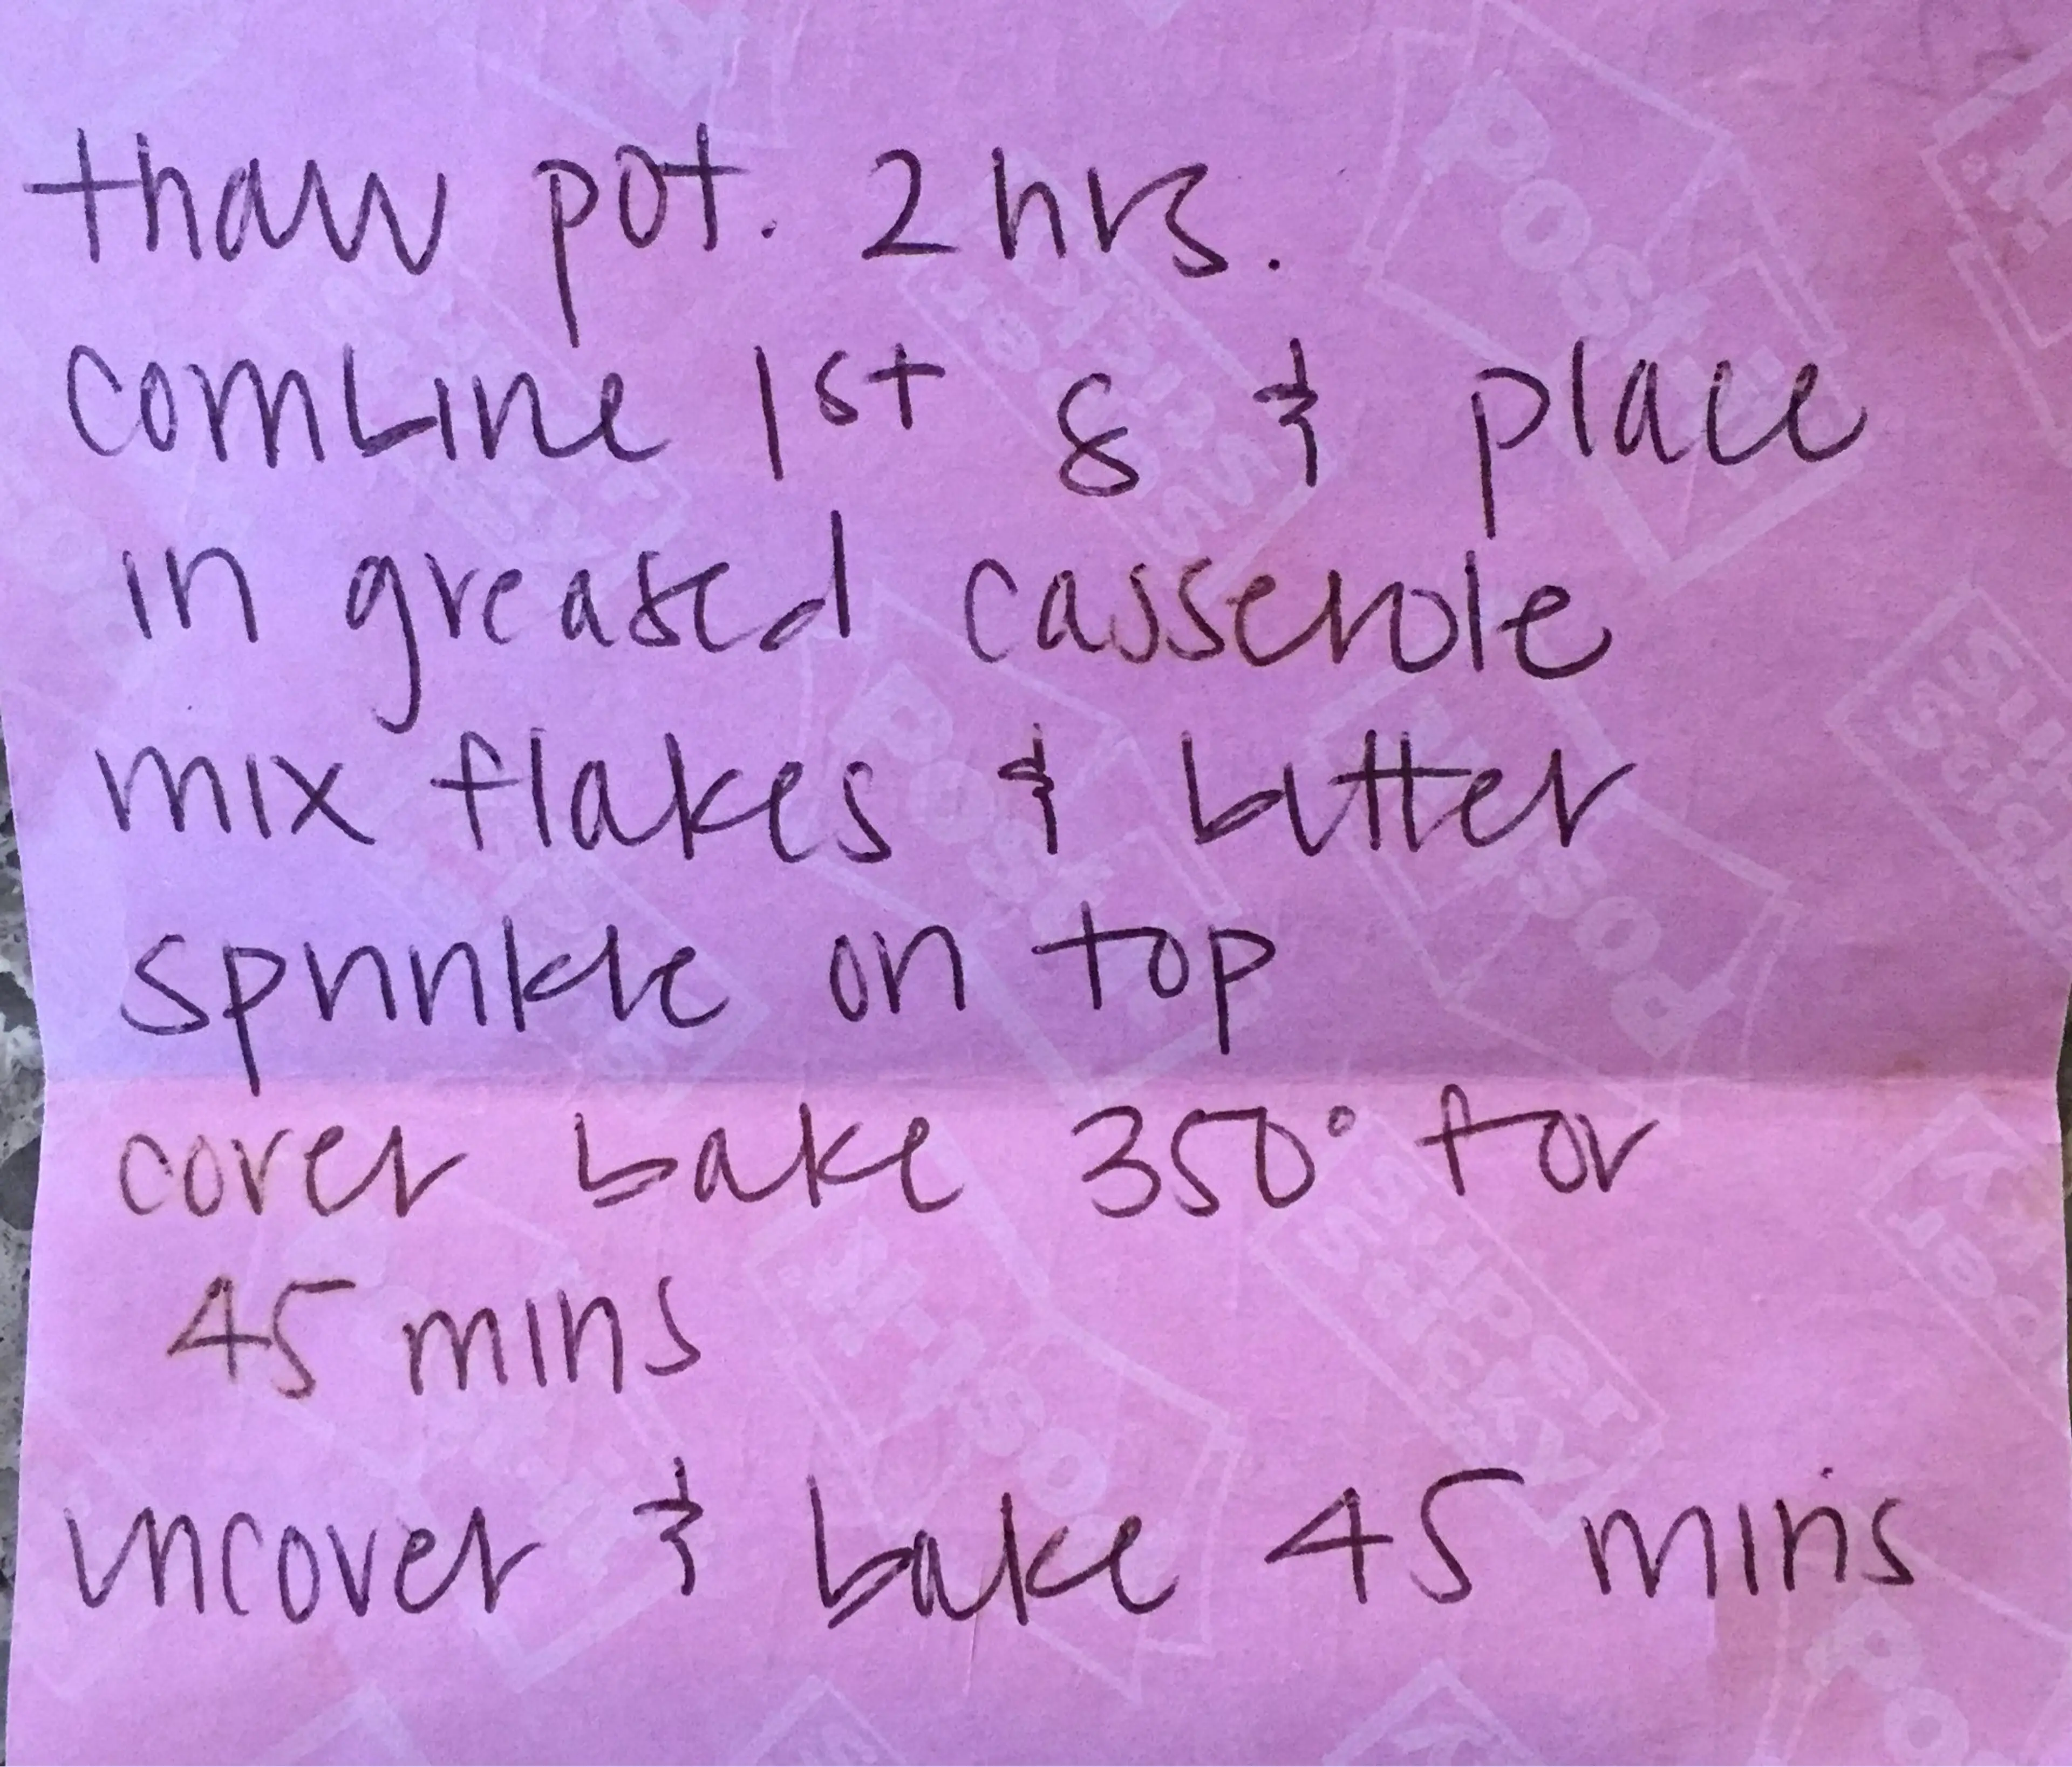 thaw pot. 2 hrs.
combine 1st 8 & place
in greased casserole
mix flakes & butter
sprinkle on top
cover bake 350° for
45 mins
uncover & bake 45 mins